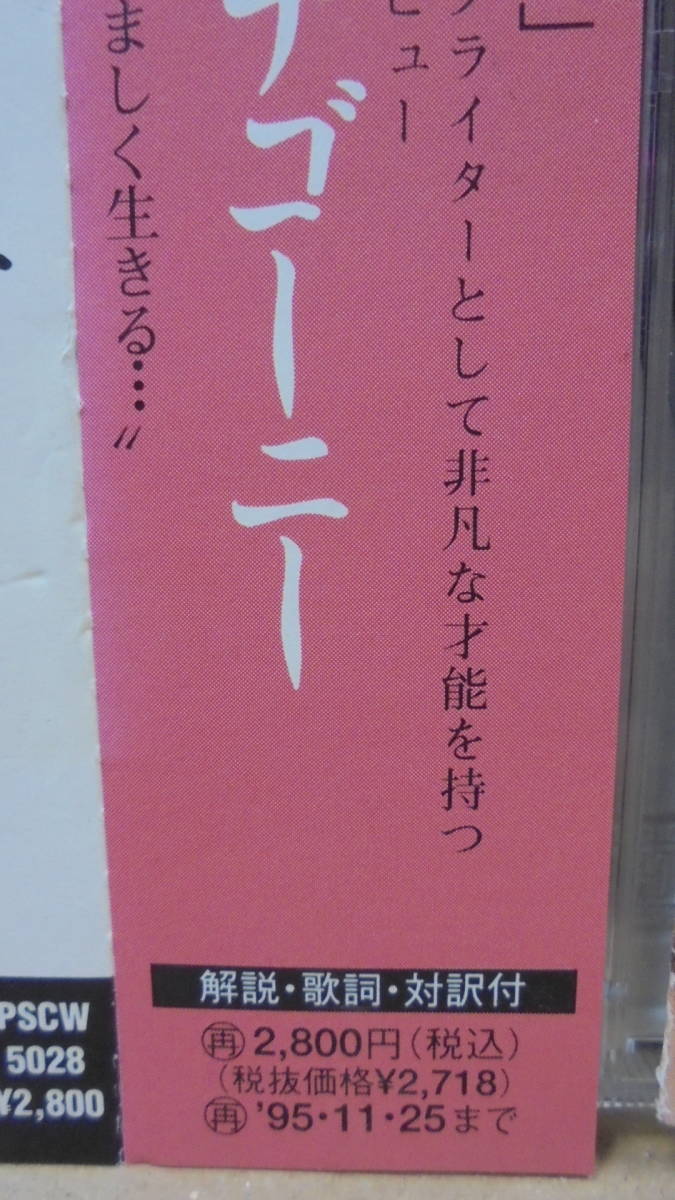 」
ライターとして非凡な才能を持つ
ビュー
ゴーニー
ましく生きる…〟
解説・歌詞・対訳付
㋐2,800円(税込)
(税抜価格¥2,718)
再 '95・11・25まで
PSCW
5028
¥2,800